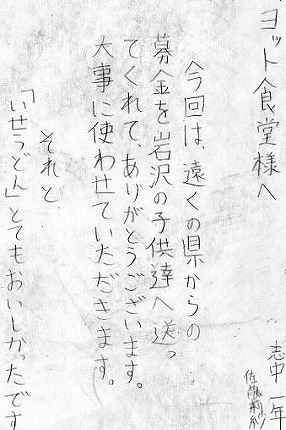 ヨット食堂様へ
今回は、遠くの県からの
募金を岩沢の子供達へ送っ
てくれて、ありがとうございます。
大事に使わせていただきます。
それと
「いせうどん」とてもおいしかったです
志中一年